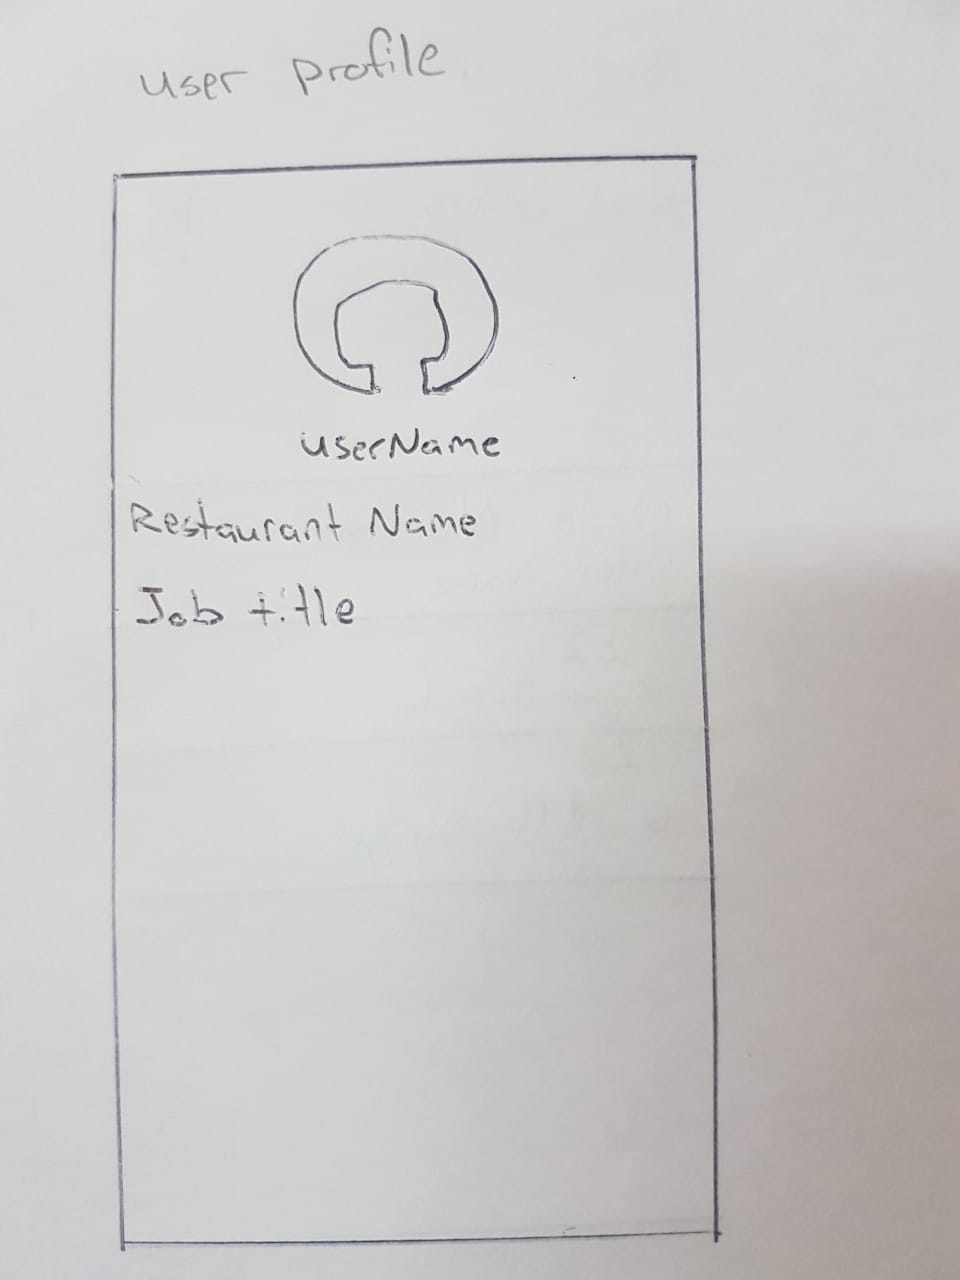 user profile
userName
Restaurant Name
Job title